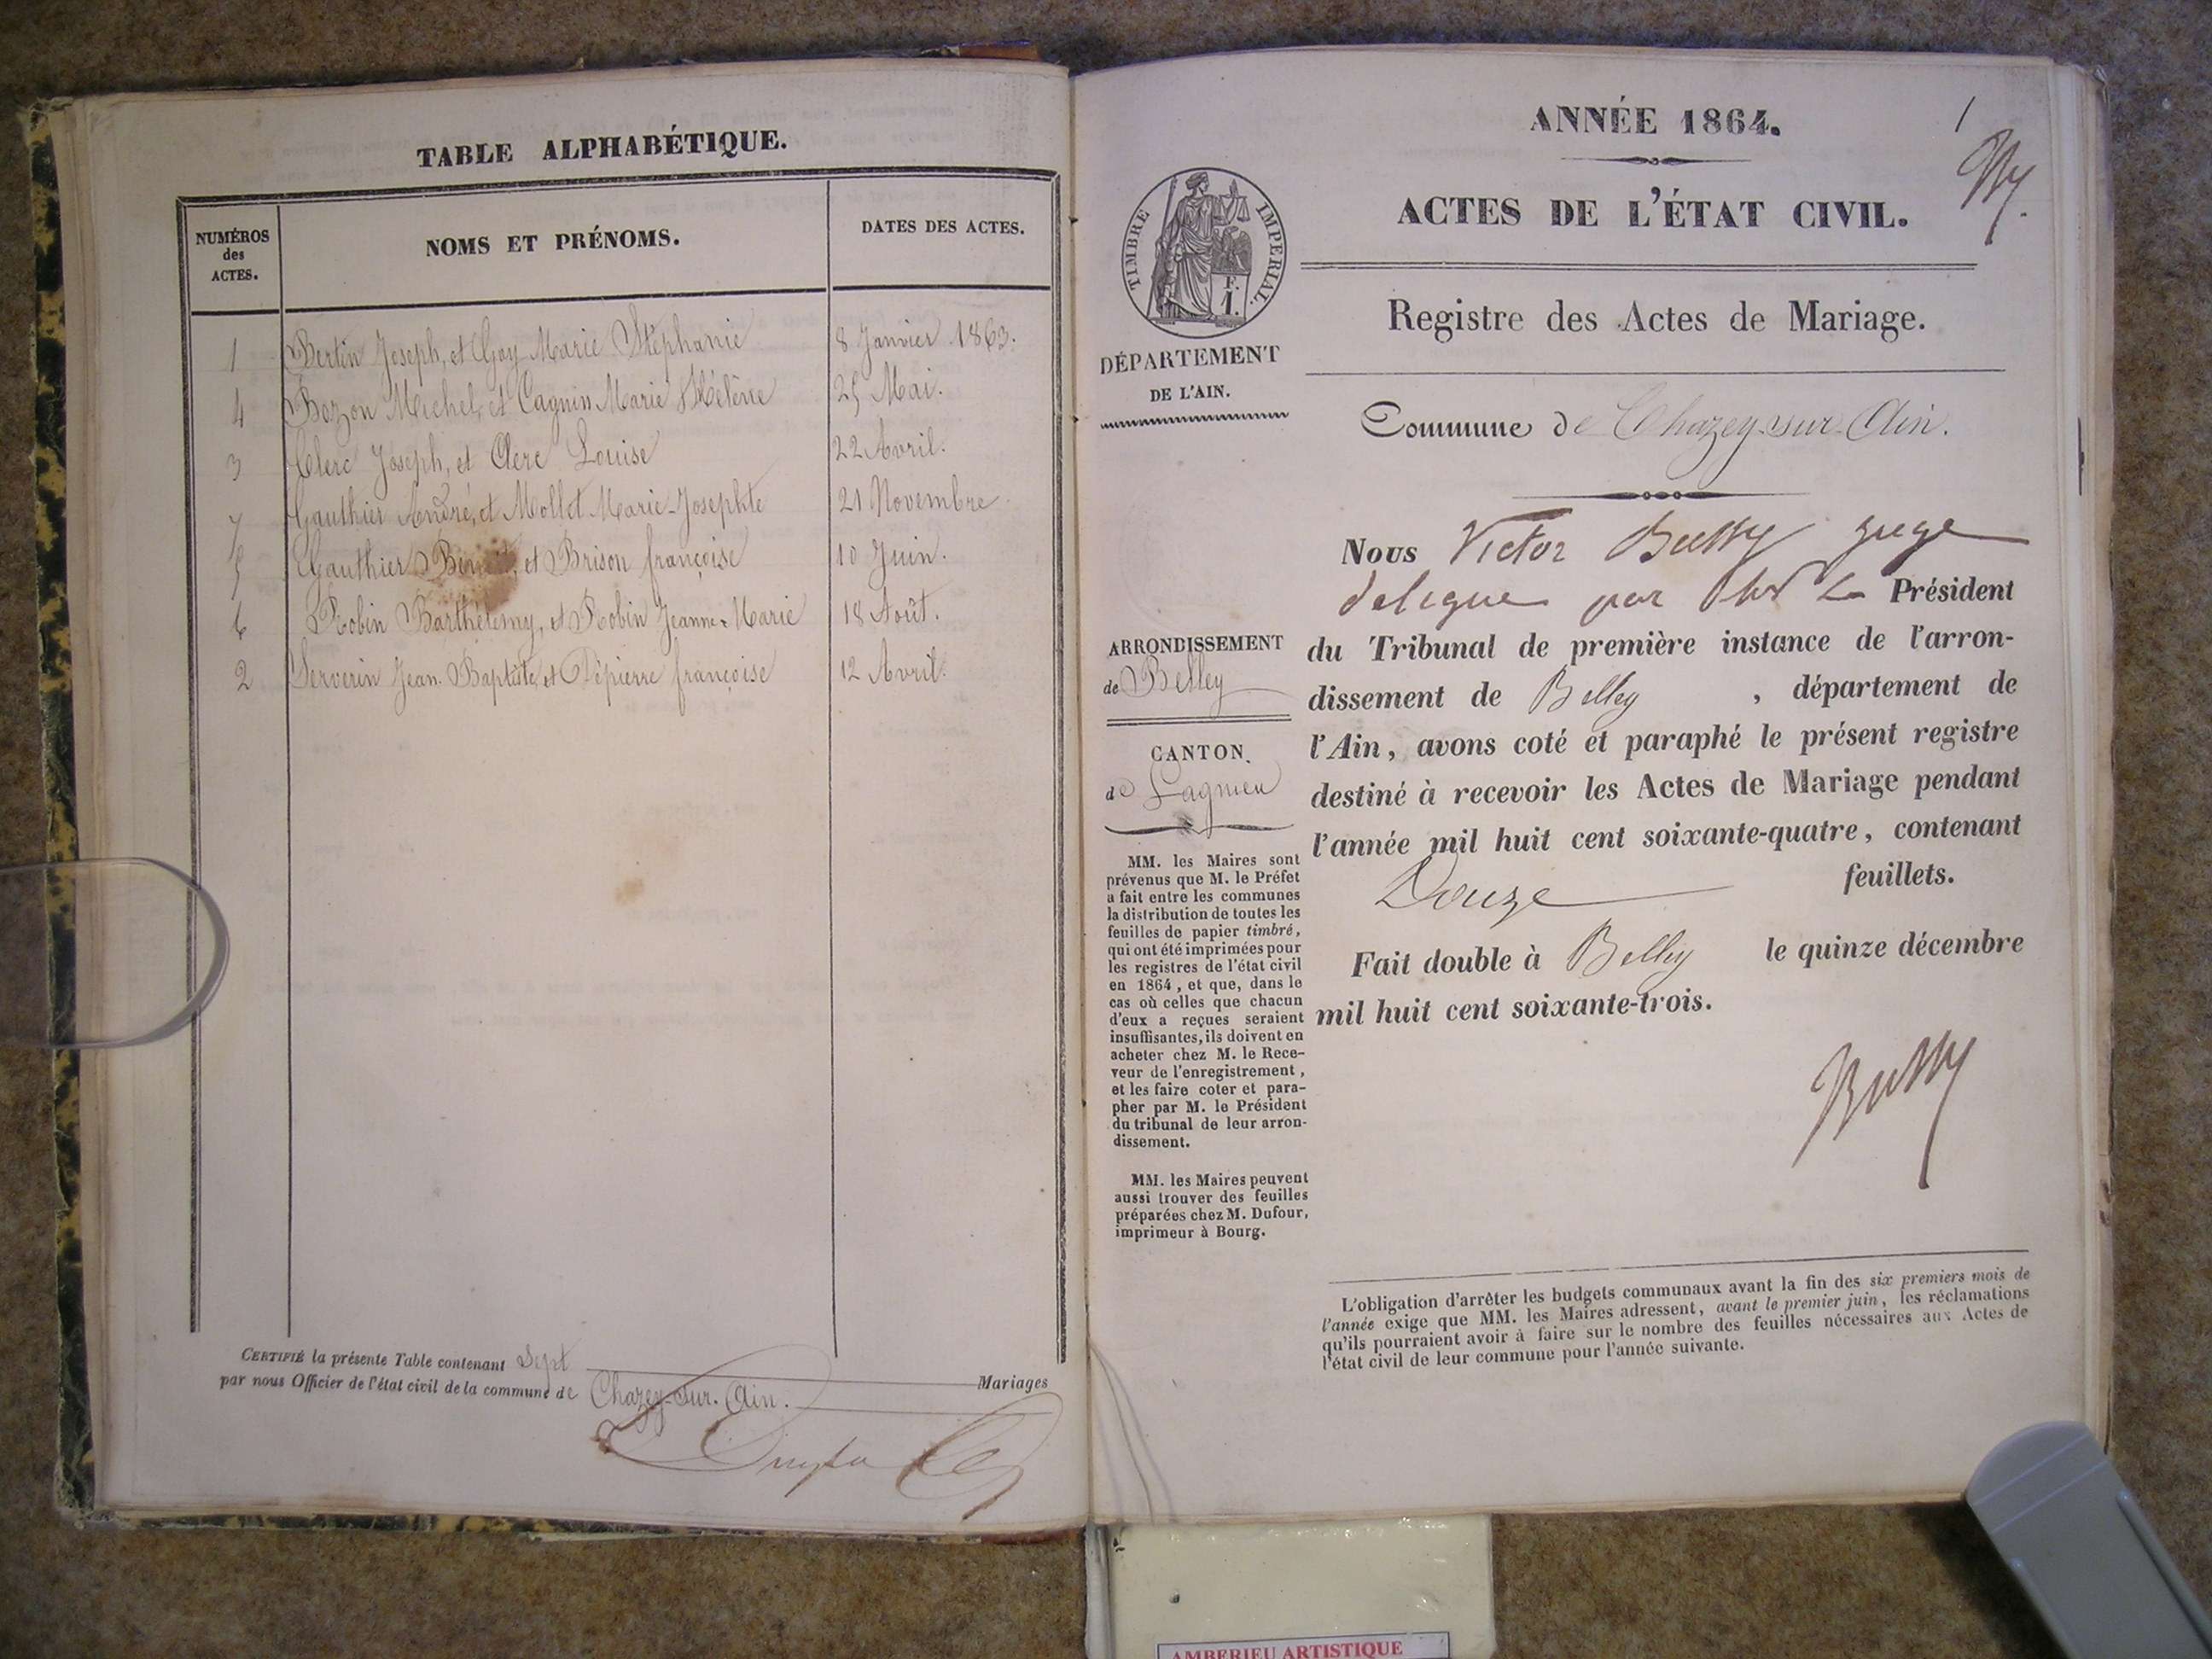 TABLE ALPHABÉTIQUE.
NUMÉROS
des
ACTES.
NOMS ET PRÉNOMS.
DATES DES ACTES.
1 Bertin Joseph, et Goy Marie Stéphanie 8 Janvier 1863.
4 Bozon Michel, et Cagnin Marie Hélène 25 Mai.
3 Clerc Joseph, et Clerc Louise 22 Avril.
7 Gauthier André, et Mollet Marie-Josephte 21 Novembre
5 Gauthier et Brison françoise 10 Juin.
6 Robin Barthélemy, et Robin Jeanne-Marie 18 Août.
2 Serverin Jean-Baptiste, et Dépierre françoise 12 Avril.
CERTIFIÉ la présente Table contenant Sept
Mariages
par nous Officier de l'état civil de la commune de Chazey-sur-Ain.
1
ANNÉE 1864.
ACTES DE L'ÉTAT CIVIL.
TIMBRE IMPERIAL.
F.
1.
Registre des Actes de Mariage.
DÉPARTEMENT
DE L'AIN.
Commune de Chazey-sur-Ain.
Nous Victor Bussy juge
délégué par Mr Le Président
du Tribunal de première instance de l'arron-
dissement de Belley , département de
l'Ain, avons coté et paraphé le présent registre
destiné à recevoir les Actes de Mariage pendant
l'année mil huit cent soixante-quatre, contenant
Douze feuillets.
Fait double à Belley le quinze décembre
mil huit cent soixante-trois.
Bussy
ARRONDISSEMENT
de Belley
CANTON
de Lagnieu
MM. les Maires sont
prévenus que M. le Préfet
a fait entre les communes
la distribution de toutes les
feuilles de papier timbré,
qui ont été imprimées pour
les registres de l'état civil
en 1864, et que, dans le
cas où celles que chacun
d'eux a reçues seraient
insuffisantes, ils doivent en
acheter chez M. le Rece-
veur de l'enregistrement,
et les faire coter et para-
pher par M. le Président
du tribunal de leur arron-
dissement.
MM. les Maires peuvent
aussi trouver des feuilles
préparées chez M. Dufour,
imprimeur à Bourg.
L'obligation d'arrêter les budgets communaux avant la fin des six premiers mois de
l'année exige que MM. les Maires adressent, avant le premier juin, les réclamations
qu'ils pourraient avoir à faire sur le nombre des feuilles nécessaires aux Actes de
l'état civil de leur commune pour l'année suivante.
AMBERIEU ARTISTIQUE